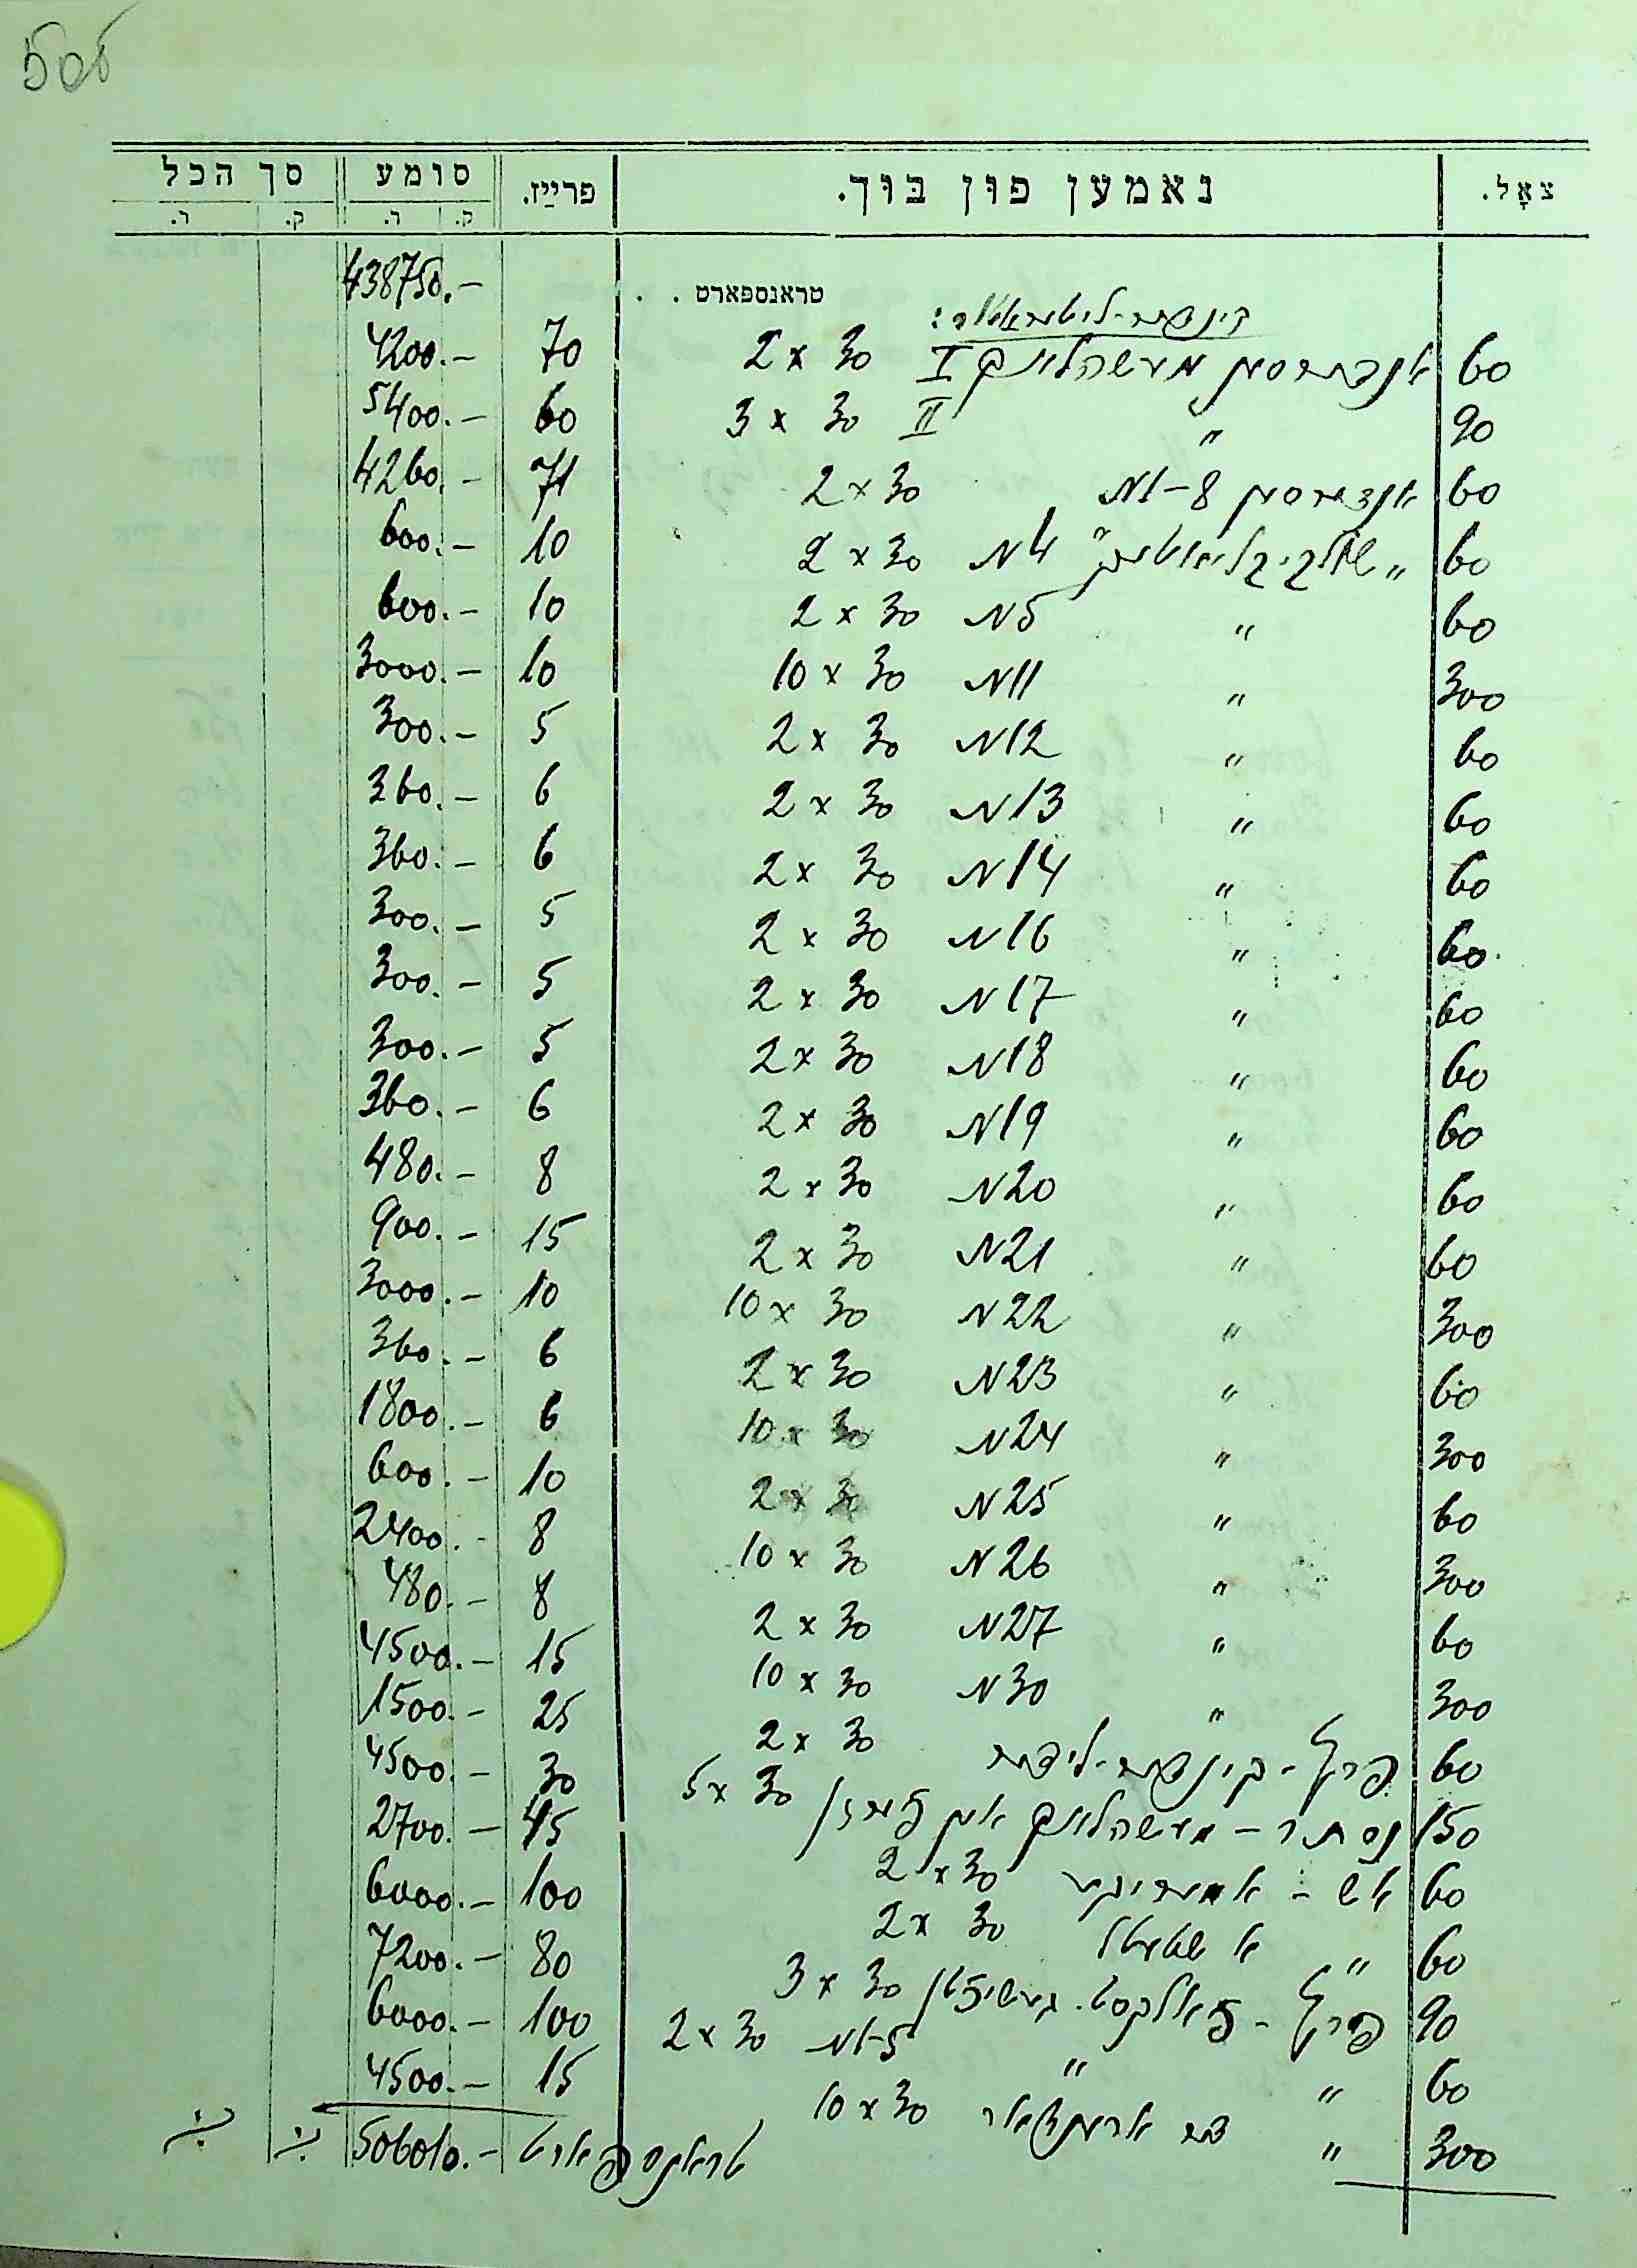 50б
צאָל. נאמען פון בוך. פרייַז. סומע סך הכל
ק. ר. ק. ר.
טראנספארט . . 438750.-
קינדער-ליטעראטור:
60 אנדערסען מעשהלעך I 2 x 30 70 4200.-
90 " II 3 x 30 60 5400.-
60 אנדערסען N1-8 2 x 30 71 4260.-
60 "שולביבליאטעק" N4 2 x 30 10 600.-
60 " N5 2 x 30 10 600.-
300 " N11 10 x 30 10 3000.-
60 " N12 2 x 30 5 300.-
60 " N13 2 x 30 6 360.-
60 " N14 2 x 30 6 360.-
60 " N16 2 x 30 5 300.-
60 " N17 2 x 30 5 300.-
60 " N18 2 x 30 5 300.-
60 " N19 2 x 30 6 360.-
60 " N20 2 x 30 8 480.-
60 " N21 2 x 30 15 900.-
300 " N22 10 x 30 10 3000.-
60 " N23 2 x 30 6 360.-
300 " N24 10 x 30 6 1800.-
60 " N25 2 x 30 10 600.-
300 " N26 10 x 30 8 2400.-
60 " N27 2 x 30 8 480.-
300 " N30 10 x 30 15 4500.-
60 פרץ - קינדער-לידער 2 x 30 25 1500.-
150 נסתר - מעשהלעך אין פערזן 5 x 30 30 4500.-
60 אש - אמעריקע 2 x 30 45 2700.-
60 " א שטעטל 2 x 30 100 6000.-
90 פרץ - פאלקסט. געשיכטן 3 x 30 80 7200.-
60 " " N1-5 2 x 30 100 6000.-
300 " 10 x 30 15 4500.-
טראנספארט 506010.-